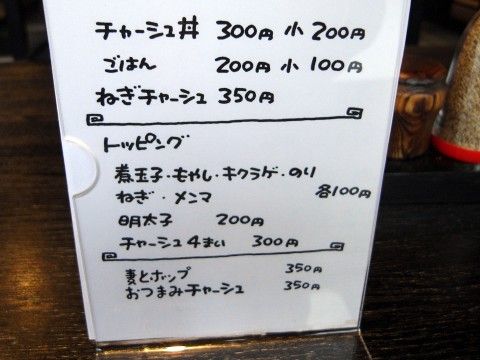 チャーシュ丼 300円 小 200円
ごはん 200円 小 100円
ねぎチャーシュ 350円
トッピング
煮玉子・もやし・キクラゲ・のり
ねぎ・メンマ 各100円
明太子 200円
チャーシュ4まい 300円
麦とホップ 350円
おつまみチャーシュ 350円